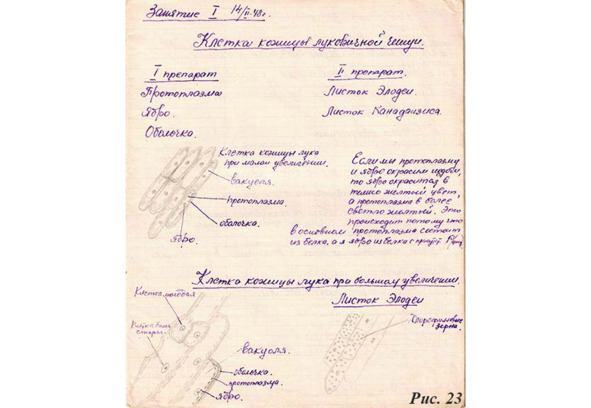 Занятие I 14/II-48г.
Клетка кожицы луковичной чешуи.
I препарат
Протоплазма
Ядро.
Оболочка.
II препарат.
Листок Элодеи.
Листок Канадензиса.
Клетка кожицы лука
при малом увеличении.
вакуоля.
протоплазма
оболочка.
ядро.
Если мы протоплазму
и ядро окрасим иодом,
то ядро окрасится в
темно желтый цвет,
а протоплазма в более
светло желтый. Это
происходит потому что
в основном протоплазма состоит
из белка, а ядро из белка с
Клетка кожицы лука при большом увеличении.
Листок Элодеи
Клетка молодая
вакуоля.
оболочка.
протоплазма.
ядро.
зерна.
Рис. 23